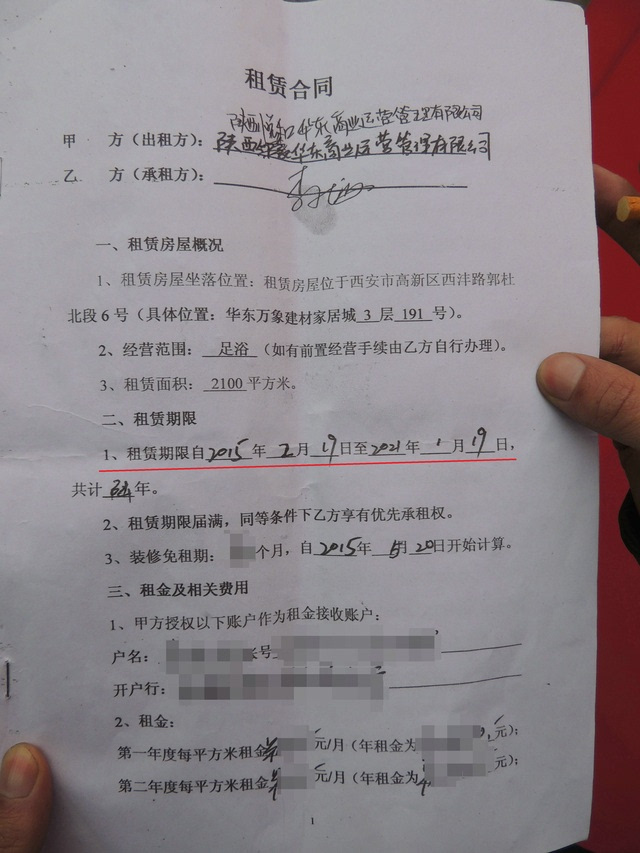 租赁合同
陕西悦和华东商业运营管理有限公司
甲 方（出租方）：陕西华东商业运营管理有限公司
乙 方（承租方）：李
一、租赁房屋概况
1、租赁房屋坐落位置：租赁房屋位于西安市高新区西沣路郭杜
北段6号（具体位置：华东万象建材家居城3层191号）。
2、经营范围：足浴（如有前置经营手续由乙方自行办理）。
3、租赁面积：2100平方米。
二、租赁期限
1、租赁期限自2015年2月19日至2021年1月19日，
共计 年。
2、租赁期限届满，同等条件下乙方享有优先承租权。
3、装修免租期： 个月，自2015年5月20日开始计算。
三、租金及相关费用
1、甲方授权以下账户作为租金接收账户：
户名： 账号
开户行：
2、租金：
第一年度每平方米租金 元/月（年租金为 元）；
第二年度每平方米租金 元/月（年租金为 元）；
1